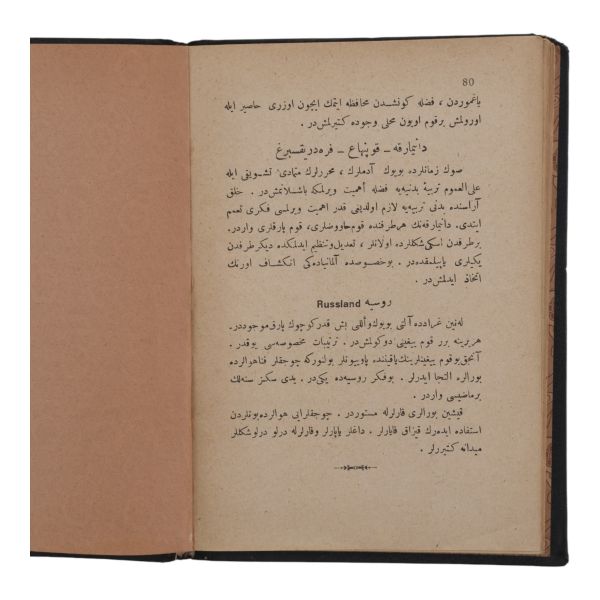 80
یاغموردن ، فضله كونشدن محافظه ایتمك ایچون اوزری حاصیر ایله
اورولمش برقوم اویون محلی وجوده كتیرلمش‌در .
دانیمارقه ـ قوپنهاغ ـ فره‌دریقسبرغ
صوك زمانلرده بویوك آدملرك ، محررلرك متمادی تشویقی ایله
علی‌العموم تربیهٔ بدنیه‌یه فضله أهمیت ویرلمكه باشلانمش‌در . خلق
آراسنده بدنی تربیه‌یه لازم اولدیغی قدر اهمیت ویرلمسی فكری تعمم
ایتدی. دانیمارقه‌نك هر طرفنده قوم حاووضلری، قوم پارقلری واردر.
برطرفدن اسكی شكللرده اولانلر ، تعدیل و تنظیم ایدلمكده دیكر طرفدن
یكیلری یاپیلمقده‌در . بوخصوصده آلمانیاده‌كی انكشاف اورنك
اتخاذ ایدلمش‌در .
روسیه Russland
له‌نین غرادده آلتی بویوك واللی بش قدر كوچوك پارق موجوددر.
هربرینه برر قوم ییغینی دوكولمش‌در . ترتیبات مخصوصه‌سی یوقدر .
آنجق بوقوم ییغینلرینك یاقیننده پاویونلر بولنورکه چوجقلر فناهوالرده
بورالره التجا ایدرلر . بوفكر روسیه‌ده یكی‌در . یدی سكز سنه‌لك
برماضیسی واردر .
قیشین بورالری قارلرله مستوردر . چوجقلرایی هوالرده بونلردن
استفاده ایده‌رك قیزاق قایارلر . داغلر یاپارلر وقارلرله درلو درلو شكللر
میدانه كتیررلر .